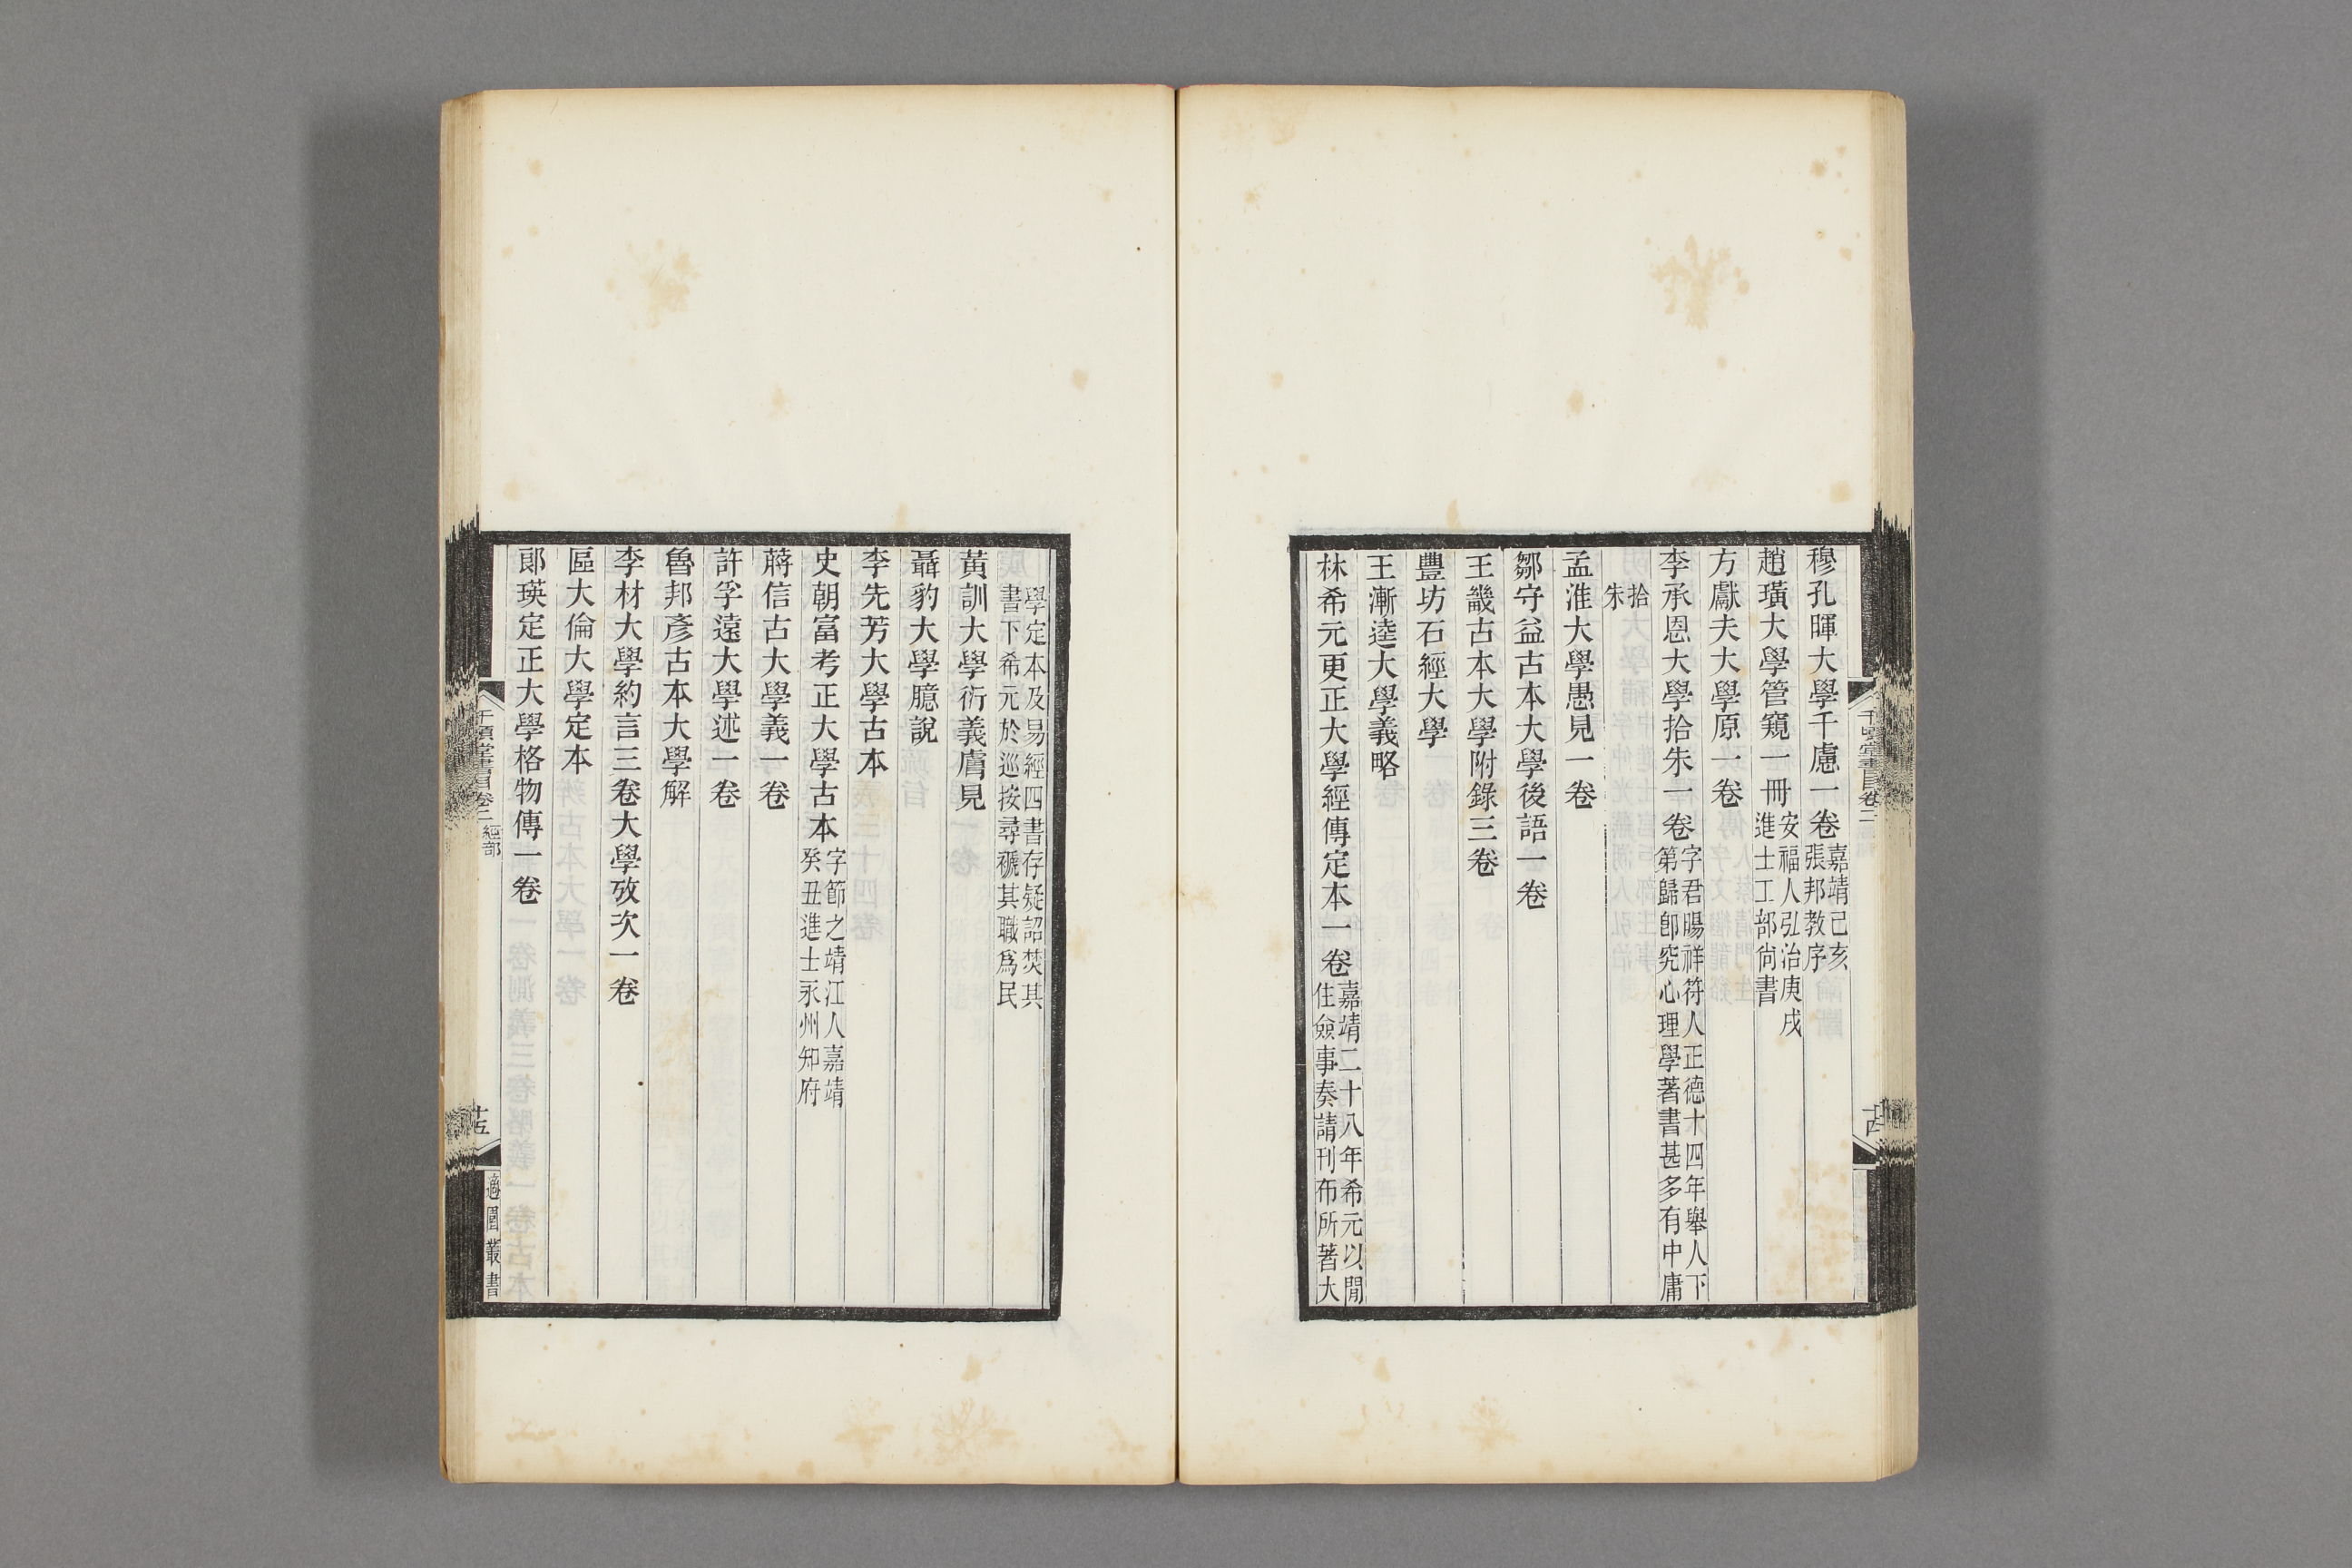 穆孔暉大學千慮一卷嘉靖己亥張邦教序
趙璜大學管窺一冊安福人弘治庚戌進士工部尙書
方獻夫大學原一卷
李承恩大學拾朱一卷字君暘祥符人正德十四年舉人下第歸卽究心理學著書甚多有中庸
拾朱
孟淮大學愚見一卷
鄒守益古本大學後語一卷
王畿古本大學附錄三卷
豐坊石經大學
王漸逵大學義略
林希元更正大學經傳定本一卷嘉靖二十八年希元以閒住僉事奏請刊布所著大
學定本及易經四書存疑詔焚其書下希元於巡按尋褫其職爲民
黃訓大學衍義膚見
聶豹大學臆說
李先芳大學古本
史朝富考正大學古本字節之靖江人嘉靖癸丑進士永州知府
蔣信古大學義一卷
許孚遠大學述一卷
魯邦彥古本大學解
李材大學約言三卷大學攷次一卷
區大倫大學定本
郞瑛定正大學格物傳一卷
千頃堂書目卷二 經部
十五
適園叢書